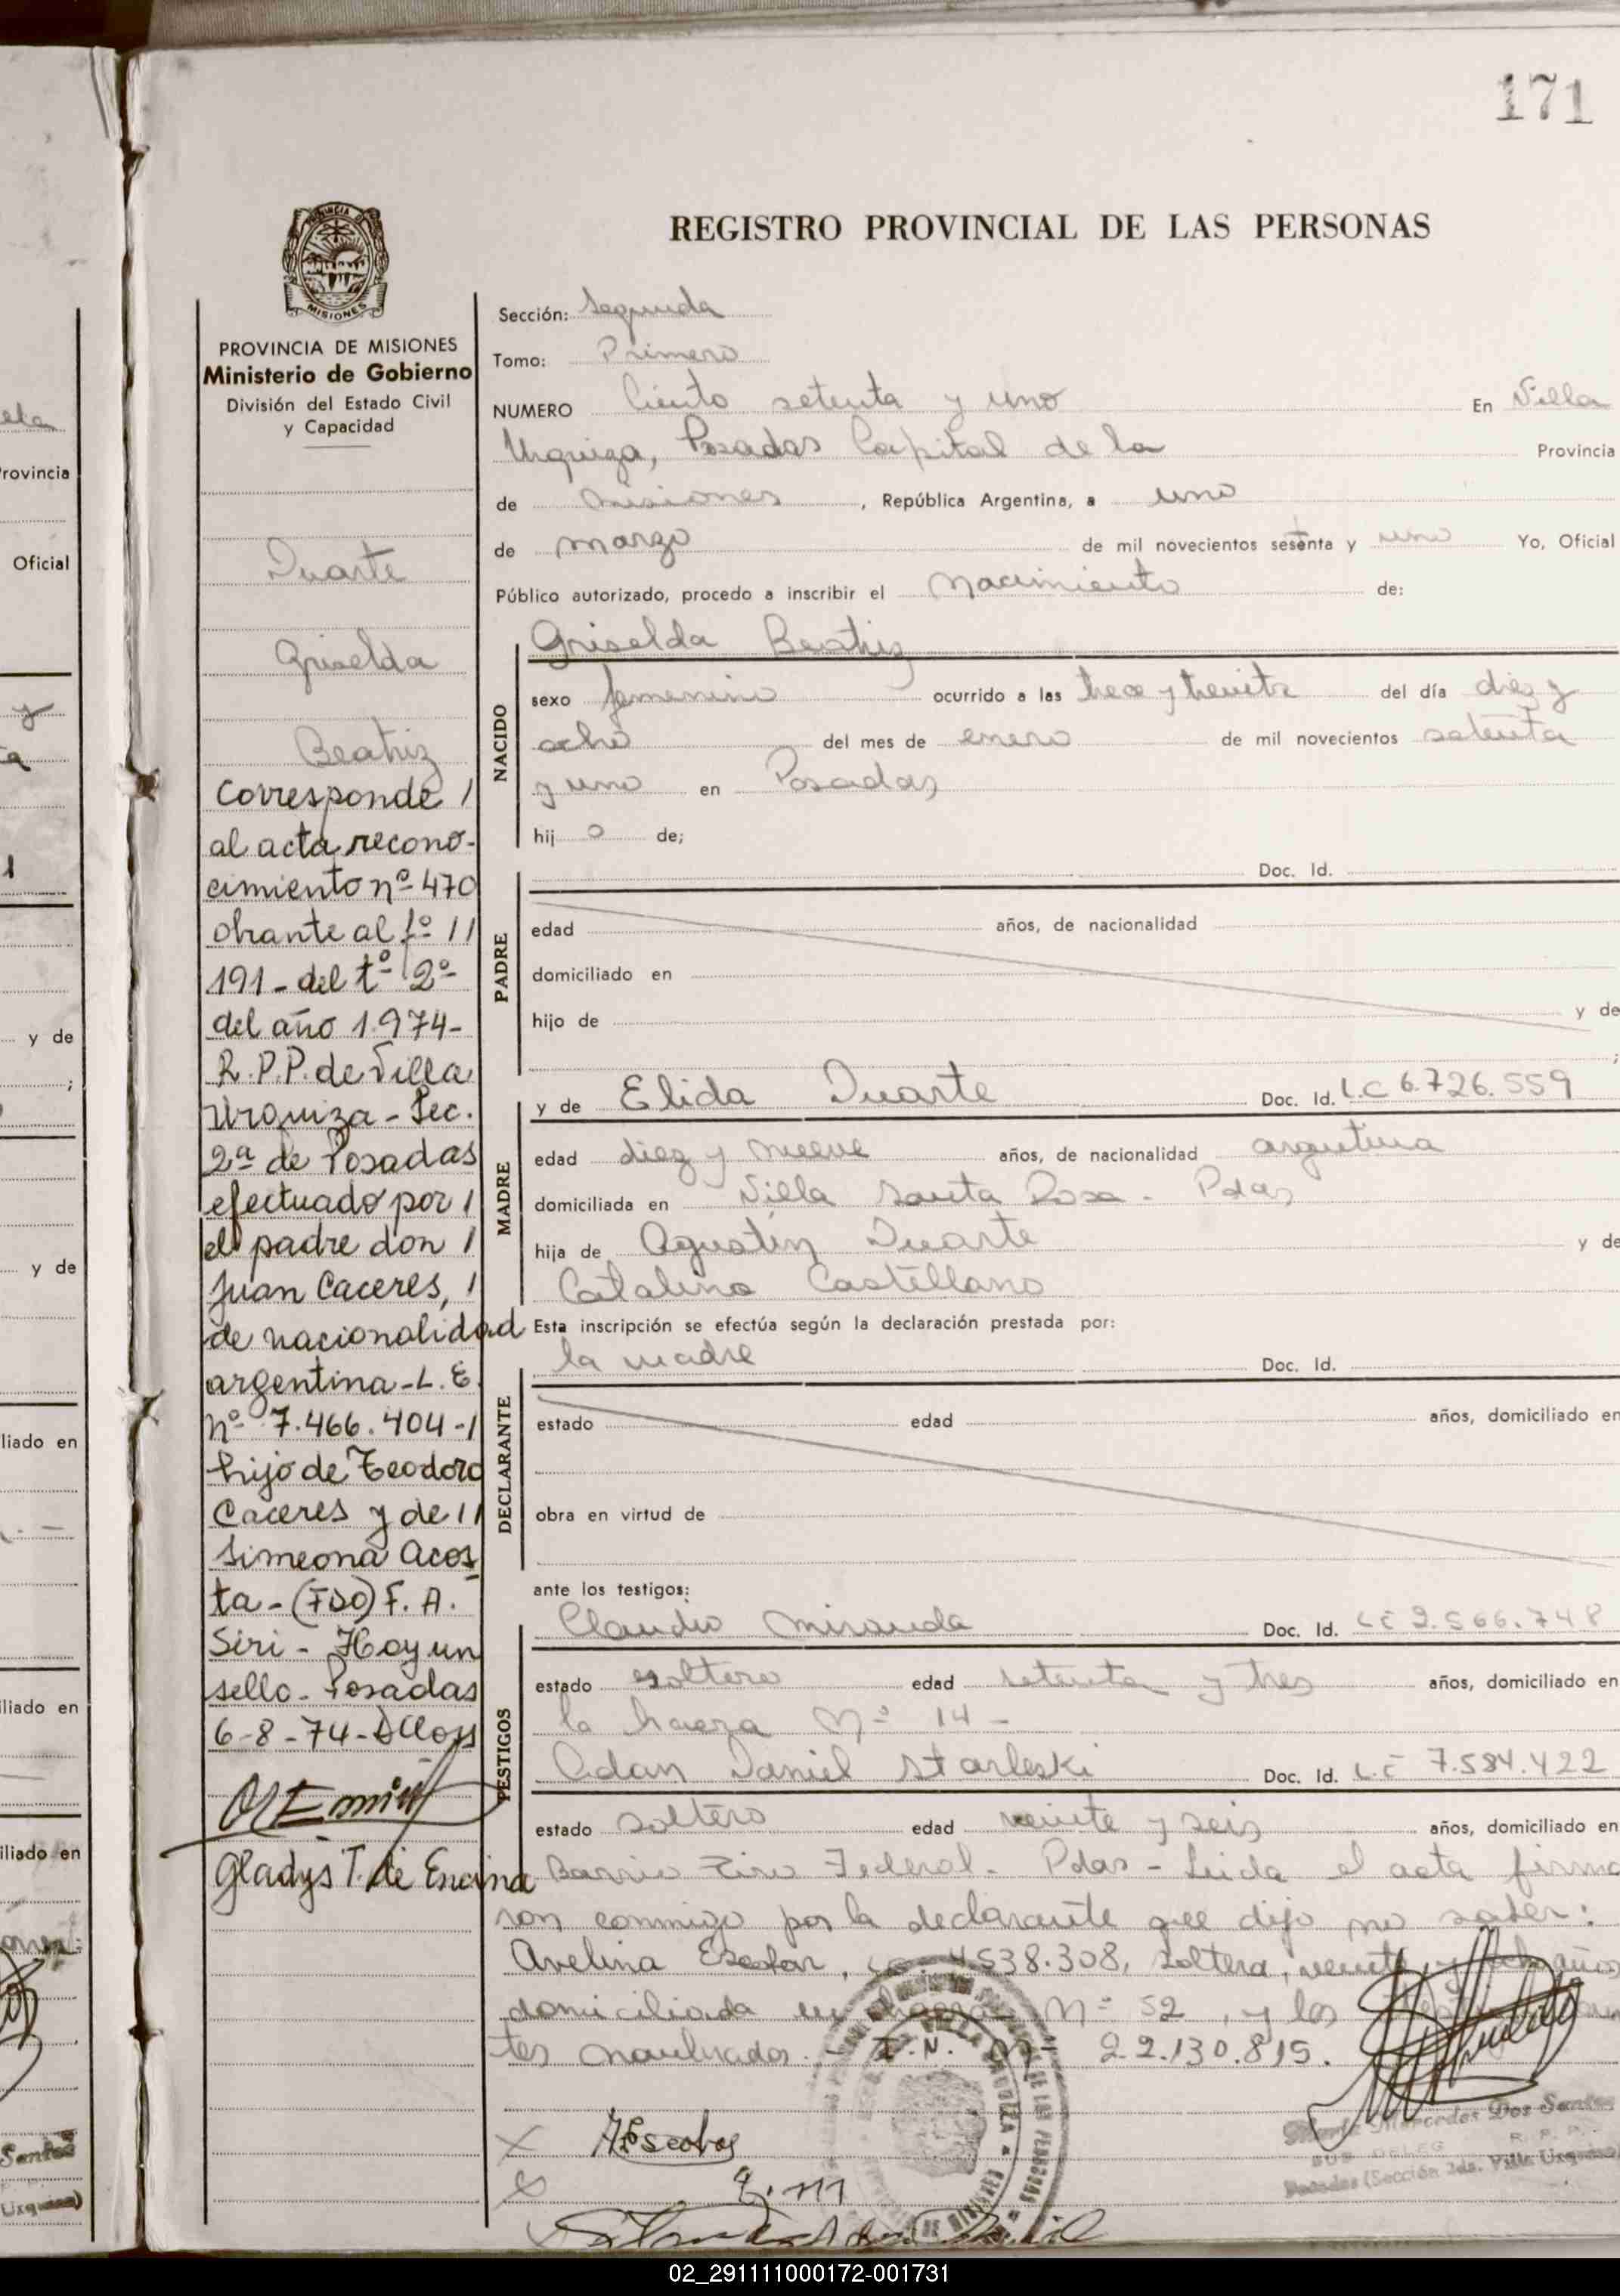 171
REGISTRO PROVINCIAL DE LAS PERSONAS
PROVINCIA DE MISIONES
Ministerio de Gobierno
División del Estado Civil
y Capacidad
Duarte
Griselda
Beatriz
Corresponde /
al acta recono-
cimiento nº 470
obrante al fº //
191- del tº 2º
del año 1.974-
R.P.P. de Villa
Urquiza - Sec.
2ª de Posadas
efectuado por /
el padre don /
Juan Caceres, /
de nacionalidad
argentina - L.E.
nº 7.466.404 -/
hijo de Teodoro
Caceres y de //
Simeona Acos
ta - (FDO) F. A.
Siri - Hay un
sello - Posadas
6-8-74-
Gladys T. de Encina
Sección: Segunda
Tomo: Primero
NUMERO Ciento setenta y uno En Villa
Urquiza, Posadas Capital de la Provincia
de Misiones, República Argentina, a uno
de marzo de mil novecientos setenta y uno Yo, Oficial
Público autorizado, procedo a inscribir el Nacimiento de:
NACIDO
Griselda Beatriz
sexo femenino ocurrido a las trece y treinta del día diez y
ocho del mes de enero de mil novecientos setenta
y uno en Posadas
hij o de;
PADRE
Doc. Id.
edad años, de nacionalidad
domiciliado en
hijo de y de
;
MADRE
y de Elida Duarte Doc. Id. L.C 6.726.559
edad diez y nueve años, de nacionalidad argentina
domiciliada en Villa Santa Rosa - Pdas
hija de Agustin Duarte y de
Catalina Castellano
Esta inscripción se efectúa según la declaración prestada por:
DECLARANTE
la madre Doc. Id.
estado edad años, domiciliado en
obra en virtud de
ante los testigos:
TESTIGOS
Claudio Miranda Doc. Id. LE 2.566.748
estado soltero edad setenta y tres años, domiciliado en
la hacra Nº 14 -
Adan Daniel Starleski Doc. Id. L.E 7.584.422
estado soltero edad veinte y seis años, domiciliado en
Barrio Tiro Federal - Pdas - Leida el acta firma
son conmigo por la declarante que dijo no saber:
Avelina Escobar, 4.538.308, soltera, veinte y ocho años
domiciliada en chacra Nº 52, y los
tes nombrados. - I.N. Nº 22.130.815.
AEscobar
Mercedes Dos Santos
SUB DELEG R. P. P.
Posadas (Sección 2da. Villa Urquiza)
02_291111000172-001731